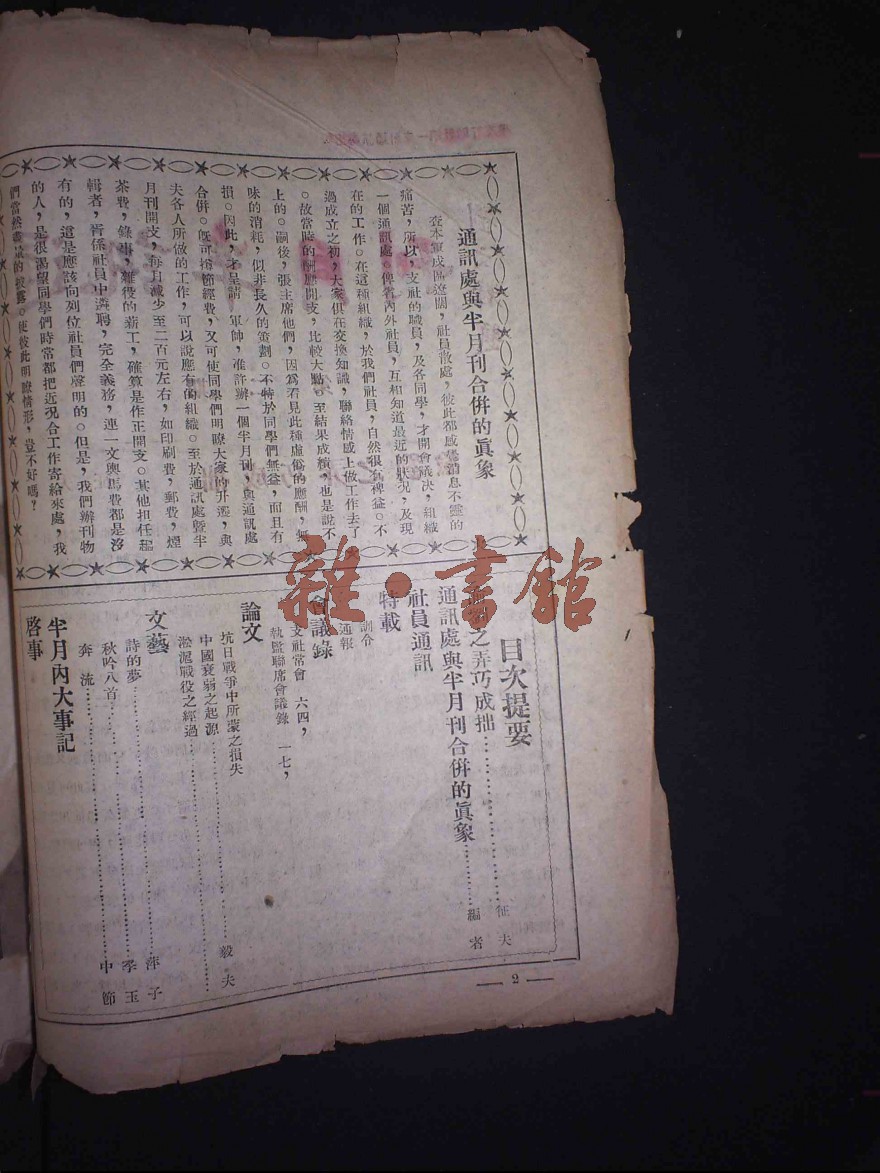 通訊處與半月刊合併的眞象
查本軍成區遼闊，社員散處，彼此都感覺消息不靈的
痛苦，所以，支社的職員，及各同學，才開會議決，組織
一個通訊處。俾省內外社員，互相知道最近的狀况，及現
在的工作。在這種組織，於我們社員，自然很爲裨益。不
過成立之初，大家俱在交換知識，聯絡情感上做工作去了
。故當時的酬應開支，比較大點。至結果成績，也是說不
上的。嗣後，張主席他們，因爲看見此種虛僞的應酬，無
味的消耗，似非長久的策劃。不特於同學們無益，而且有
損。因此，才呈請 軍師，准許辦一個半月刊，與通訊處
合併。旣可撙節經費，又可使同學們明瞭大家的升遷，與
夫各人所做的工作，可以說應有的組織。至於通訊處暨半
月刊開支，每月減少至二百元左右，如印刷費，郵費，煙
茶費，錄事，雜役的薪工，確算是作正開支。其他担任起
輯者，皆係社員中遴聘，完全義務，連一文輿馬費都是沒
有的，這是應該向列位社員們聲明的。但是，我們辦刊物
的人，是很渴望同學們時常都把近況合工作寄給來處，我
們當然盡量的披露。使彼此明瞭情形，豈不好嗎？
目次提要
之弄巧成拙 征夫
通訊處與半月刊合併的眞象 編者
社員通訊
特載
訓令
通報
會議錄
支社常會 六四，
執監聯席會議錄 一七，
論文
抗日戰爭中所蒙之損失
中國衰弱之起源 毅夫
淞滬戰役之經過
文藝
詩的夢 萍子
秋吟八首 季玉
奔流 中節
半月內大事記
啓事
2
雜·書館